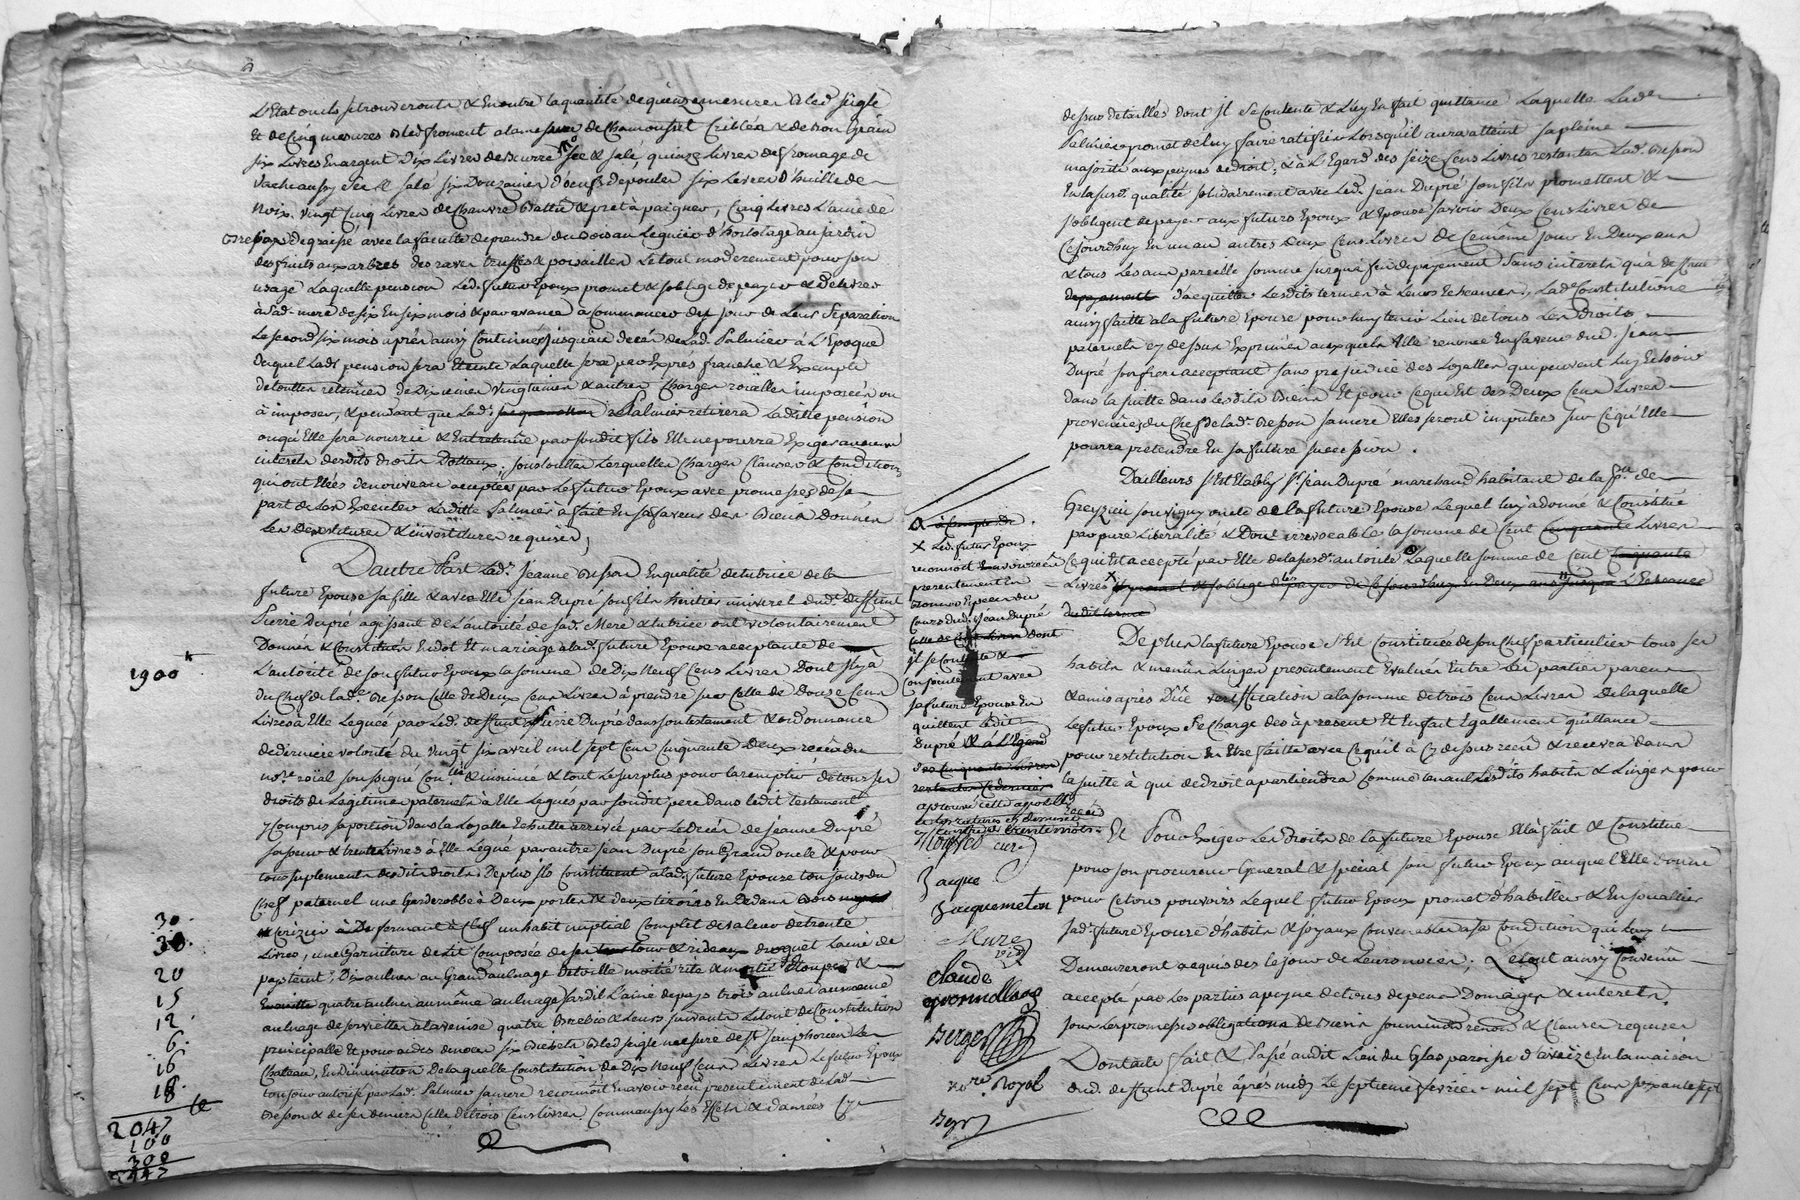 L'Etat ou ils se trouveront & En outre la quantité de quinze mesures Bled seigle
Et de Cinq mesures Bled froment a la mesure de Chamousset Criblés & de bon Grain
six Livres En argent Dix Livres de beurre sec & salé, quinze Livres de fromage de
vache aussy sec & salé six Douzaines d'oeufs de poules six Livres d'huille de
Noix, vingt Cinq Livres de Chanvre Battu & pret à paigner, Cinq Livres Laine de
Brebis degraissé avec la faculté de prendre du Bois au Leguier d'hortolage au jardin
des fruits aux arbres des raves truffes & poirailles Le tout moderement pour son
usage Laquelle pension Led. futur Epoux promet & s'oblige de payer & delivrer
à Sad. mere de six En six mois & par avance à Commancer du jour de Leur Separation
Le second six mois après ainsy Continués jusqu'au decés de Lad. Palmier à L'Epoque
duquel Lade pension sera Eteinte Laquelle sera par Exprés franche & Exempte
de touttes retenues de Dixieme vingtieme & autres Charges roialles imposées ou
à imposer, & pendant que Lad. Palmier retirera Laditte pension
ou qu'Elle sera nourrie & Entretenue par sondit fils Elle ne pourra Exiger aucuns
interets desdits droits Dottaux, sous touttes Lesquelles Charges Clauses & Conditions
qui ont Etés de nouveau acceptées par Le futur Epoux avec promesses de sa
part de Les Executer Laditte Palmier a fait En sa faveur des Biens Donnés
Les Devestitures & investitures requises,
D'autre Part Lade Jeanne Besson En qualité de tutrice de la
future Epouse sa fille & avec Elle Jean Dupré son fils heritier universel dud. deffunt
Pierre Dupré agissant de L'autorité de sad. Mere & tutrice ont volontairement
Donnés & Constitués En Dot Et mariage a lade future Epouse acceptante de
1900 tt
L'autorité de son futur Epoux la somme de Dix Neuf Cens Livres Dont il y a
du Chef de lade Besson Celle de Deux Cens Livres à prendre sur Celle de Douze Cens
Livres à Elle Leguée par Led. deffunt Pierre Dupré dans son testament & ordonnance
de derniere volonté du vingt six avril mil sept Cens Cinquante Deux reçeu du
nore roial soussigné Conlé & insinué & tout Le surplus pour la remplir de tous ses
droits de Legitime paternels à Elle Legués par sondit pere dans ledit testament
y Compris sa portion dans la Logatte Echutte arrivée par Le Decés de Jeanne Dupré
sa soeur & trente Livres à Elle Legué par autre Jean Dupré son Grand oncle & pour
tous suplements desdits droits. De plus ils Constituent a lade future Epouse toujours du
Chef paternel une Garderobbe à Deux portes & deux tiroirs En Dedans Bois noyer
& Cerizier fermant à Clef un habit nuptial Complet de valeur de trente
Livres, une Garniture de Lit Composée de son tour & rideaux droguet Laine de
pays teint, Dix aulnes au Grand aulnage De toille moitié rite & moitié d'Etoupes &
quatre aulnes au même aulnage sardil Laine de pays trois aulnes au même
aulnage de serviettes a la venise quatre Brebis & Leurs suivants Le tout de Constitution
principalle Et pour aides de noces six Bichets Bled seigle mesure de St Simphorien Le
Chateau, En diminution de laquelle Constitution de Dix Neuf Cens Livres Le futur Epoux
toujours autorisé par Lad. Palmier sa mere reconnoit En avoir reçeu presentement de Lad.
Besson & de ses deniers Celle de trois Cens Livres Comm'aussy Les Effets & danrées Cy-
30
30
20
15
12
6
16
18
2047
100
300
2447
dessus detaillés dont il Se Contente & L'En En fait quittance Laquelle Lade
Palmier promet de luy faire ratiffier Lorsqu'il aura atteint sa pleine
majorité aux peines de droit, & à L'Egard des seize Cens Livres restantes Lad. Besson
En la susde qualité solidairement avec Led. Jean Dupré son fils promettent &
s'obligent de payer aux futurs Epoux & Epouse savoir Deux Cens Livres de
Ce jourdhuy En un an autres deux Cens Livres de Ce même jour En Deux ans
& tous Les ans pareille somme jusqu'a fin de payement Sans interets qu'à deffaut
d'acquitter Lesdits termes à Leurs Echeances, Lade Constitution
ainsy faitte a la future Epouse pour luy tenir Lieu de tous Les droits
paternels cy dessus Exprimés auxquels Elle renonce En faveur dud. Jean
Dupré son frere acceptant sans prejudice des Logattes qui peuvent luy Echoir
dans la suitte dans lesdits biens Et pour Ce qui Est des Deux Cens Livres
provenües du Chef de lade Besson sa mere Elles seront imputées sur Ce qu'Elle
pourra pretendre En sa future succession.
D'ailleurs s'est Etably Sr Jean Dupré marchand habitant de la psse de
Greyzieu son vigny oncle de la future Epouse Lequel luy a donné & Constitué
par pure Liberalité & Don irrevocable la somme de Cent Cinquante Livres
Ce qui Est accepté par Elle de la susde autorité Laquelle somme de Cent Cinquante
Livres x promet & s'oblige de payer de Ce jourdhuy En Deux ans jusque L'Echeance
dudit terme
De plus la future Epouse S'Est Constituée de son Chef particulier tous ses
habits & menus Linges presentement Evalués Entre Les parties parens
& amis après Due veriffication a la somme de trois Cens Livres De laquelle
Le futur Epoux Se Charge dès à present Et En fait Egallement quittance
pour restitution En Etre faitte avec Ce qu'il à Cy dessus reçeu & recevra dans
la suitte à qui de droit apartiendra Comme tenant Lesdits habits & Linges pour
Et Pour Exiger Les Droits de la future Epouse Elle à fait & Constitué
pour son procureur General & special son futur Epoux auquel Elle donne
pour Ce tous pouvoirs Lequel futur Epoux promet d'habiller & Enjoualler
sade future Epouse d'habits & joyaux Convenables a sa Condition qui luy
Demeureront acquis des le jour de Leurs noces; Le tout ainsy Convenû
accepté par Les parties a peyne de tous depens Domages & interets,
sous Les promesses obligations de Biens soumissions renons & Clauses requises
Dont acte fait & Passé audit Lieu du Glas paroisse d'Aveize En la maison
dud. deffunt Dupré après midy Le septieme fevrier mil sept Cens soixante sept
x Led. futur Epoux
reconnoit En avoir reçeu
presentement En
bonnes Especes du
Cours dud. s. Jean Dupré
Celle de Cent Livres dont
il se Contente &
Conjointement avec
sa future Epouse En
quittent Ledit
Dupré & à L'Egard
des Cinquante Livres
restantes
aprouvé cette apostille
Mousset curé
Jacque
Jacquemeton
Mure
Claude
Berger
nore Royal